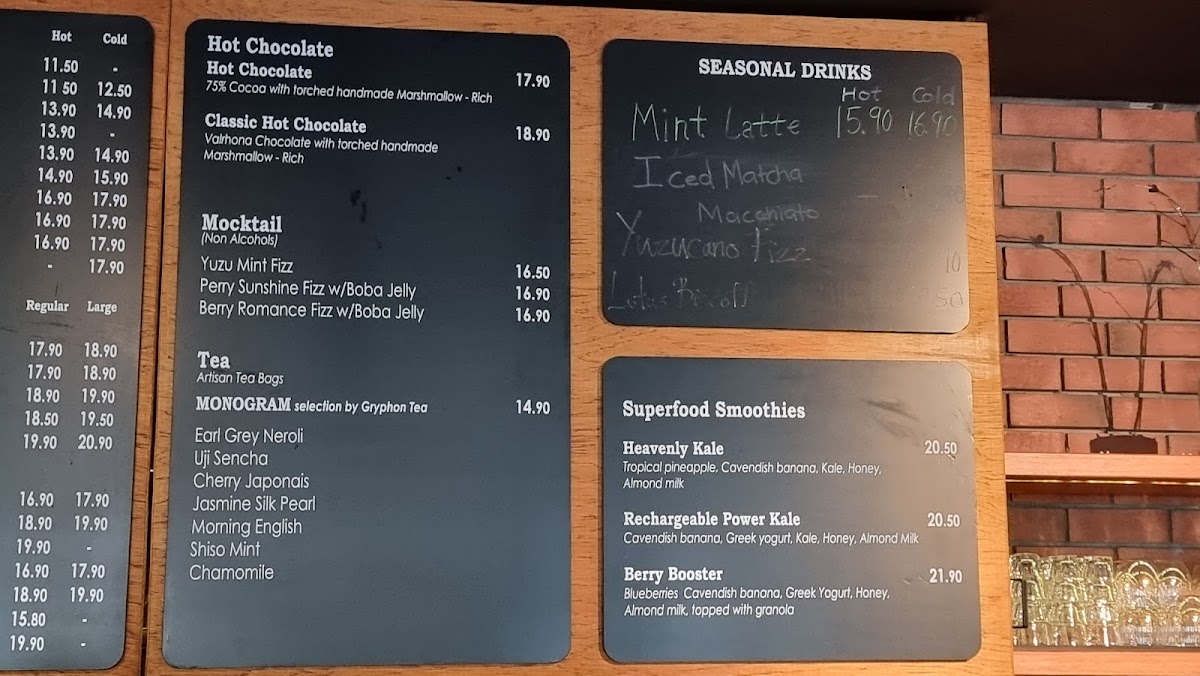 Hot Cold
11.50 -
11 50 12.50
13.90 14.90
13.90 -
13.90 14.90
14.90 15.90
16.90 17.90
16.90 17.90
16.90 17.90
- 17.90
Regular Large
17.90 18.90
17.90 18.90
18.90 19.90
18.50 19.50
19.90 20.90
16.90 17.90
18.90 19.90
19.90 -
16.90 17.90
18.90 19.90
15.80 -
19.90 -
Hot Chocolate
Hot Chocolate 17.90
75% Cocoa with torched handmade Marshmallow - Rich
Classic Hot Chocolate 18.90
Valrhona Chocolate with torched handmade
Marshmallow - Rich
Mocktail
(Non Alcohols)
Yuzu Mint Fizz 16.50
Perry Sunshine Fizz w/Boba Jelly 16.90
Berry Romance Fizz w/Boba Jelly 16.90
Tea
Artisan Tea Bags
MONOGRAM selection by Gryphon Tea 14.90
Earl Grey Neroli
Uji Sencha
Cherry Japonais
Jasmine Silk Pearl
Morning English
Shiso Mint
Chamomile
SEASONAL DRINKS
Hot Cold
Mint Latte 15.90 16.90
Iced Matcha
Macchiato
Yuzucano Fizz
Lotus Biscoff
Superfood Smoothies
Heavenly Kale 20.50
Tropical pineapple, Cavendish banana, Kale, Honey,
Almond milk
Rechargeable Power Kale 20.50
Cavendish banana, Greek yogurt, Kale, Honey, Almond Milk
Berry Booster 21.90
Blueberries Cavendish banana, Greek Yogurt, Honey,
Almond milk, topped with granola